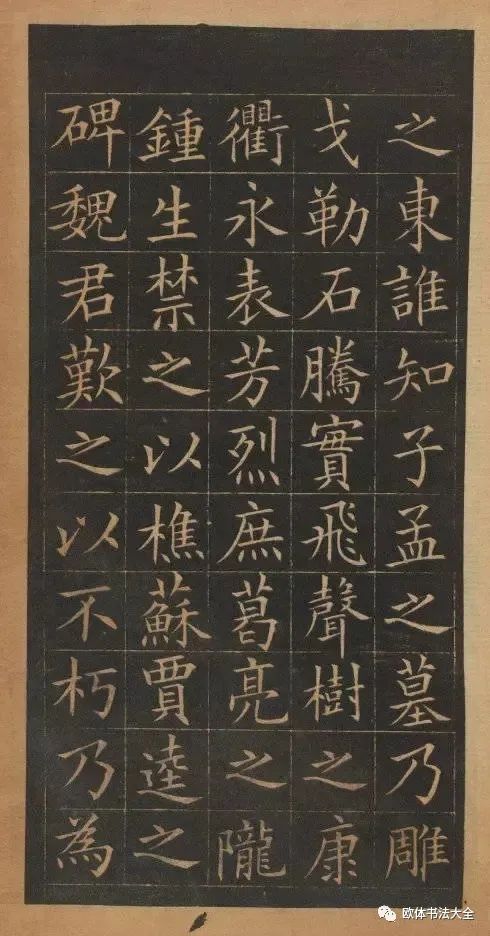 之東誰知子孟之墓乃雕
戈勒石騰實飛聲樹之康
衢永表芳烈庶葛亮之隴
鍾生禁之以樵蘇賈逵之
碑魏君歎之以不朽乃為
欧体书法大全